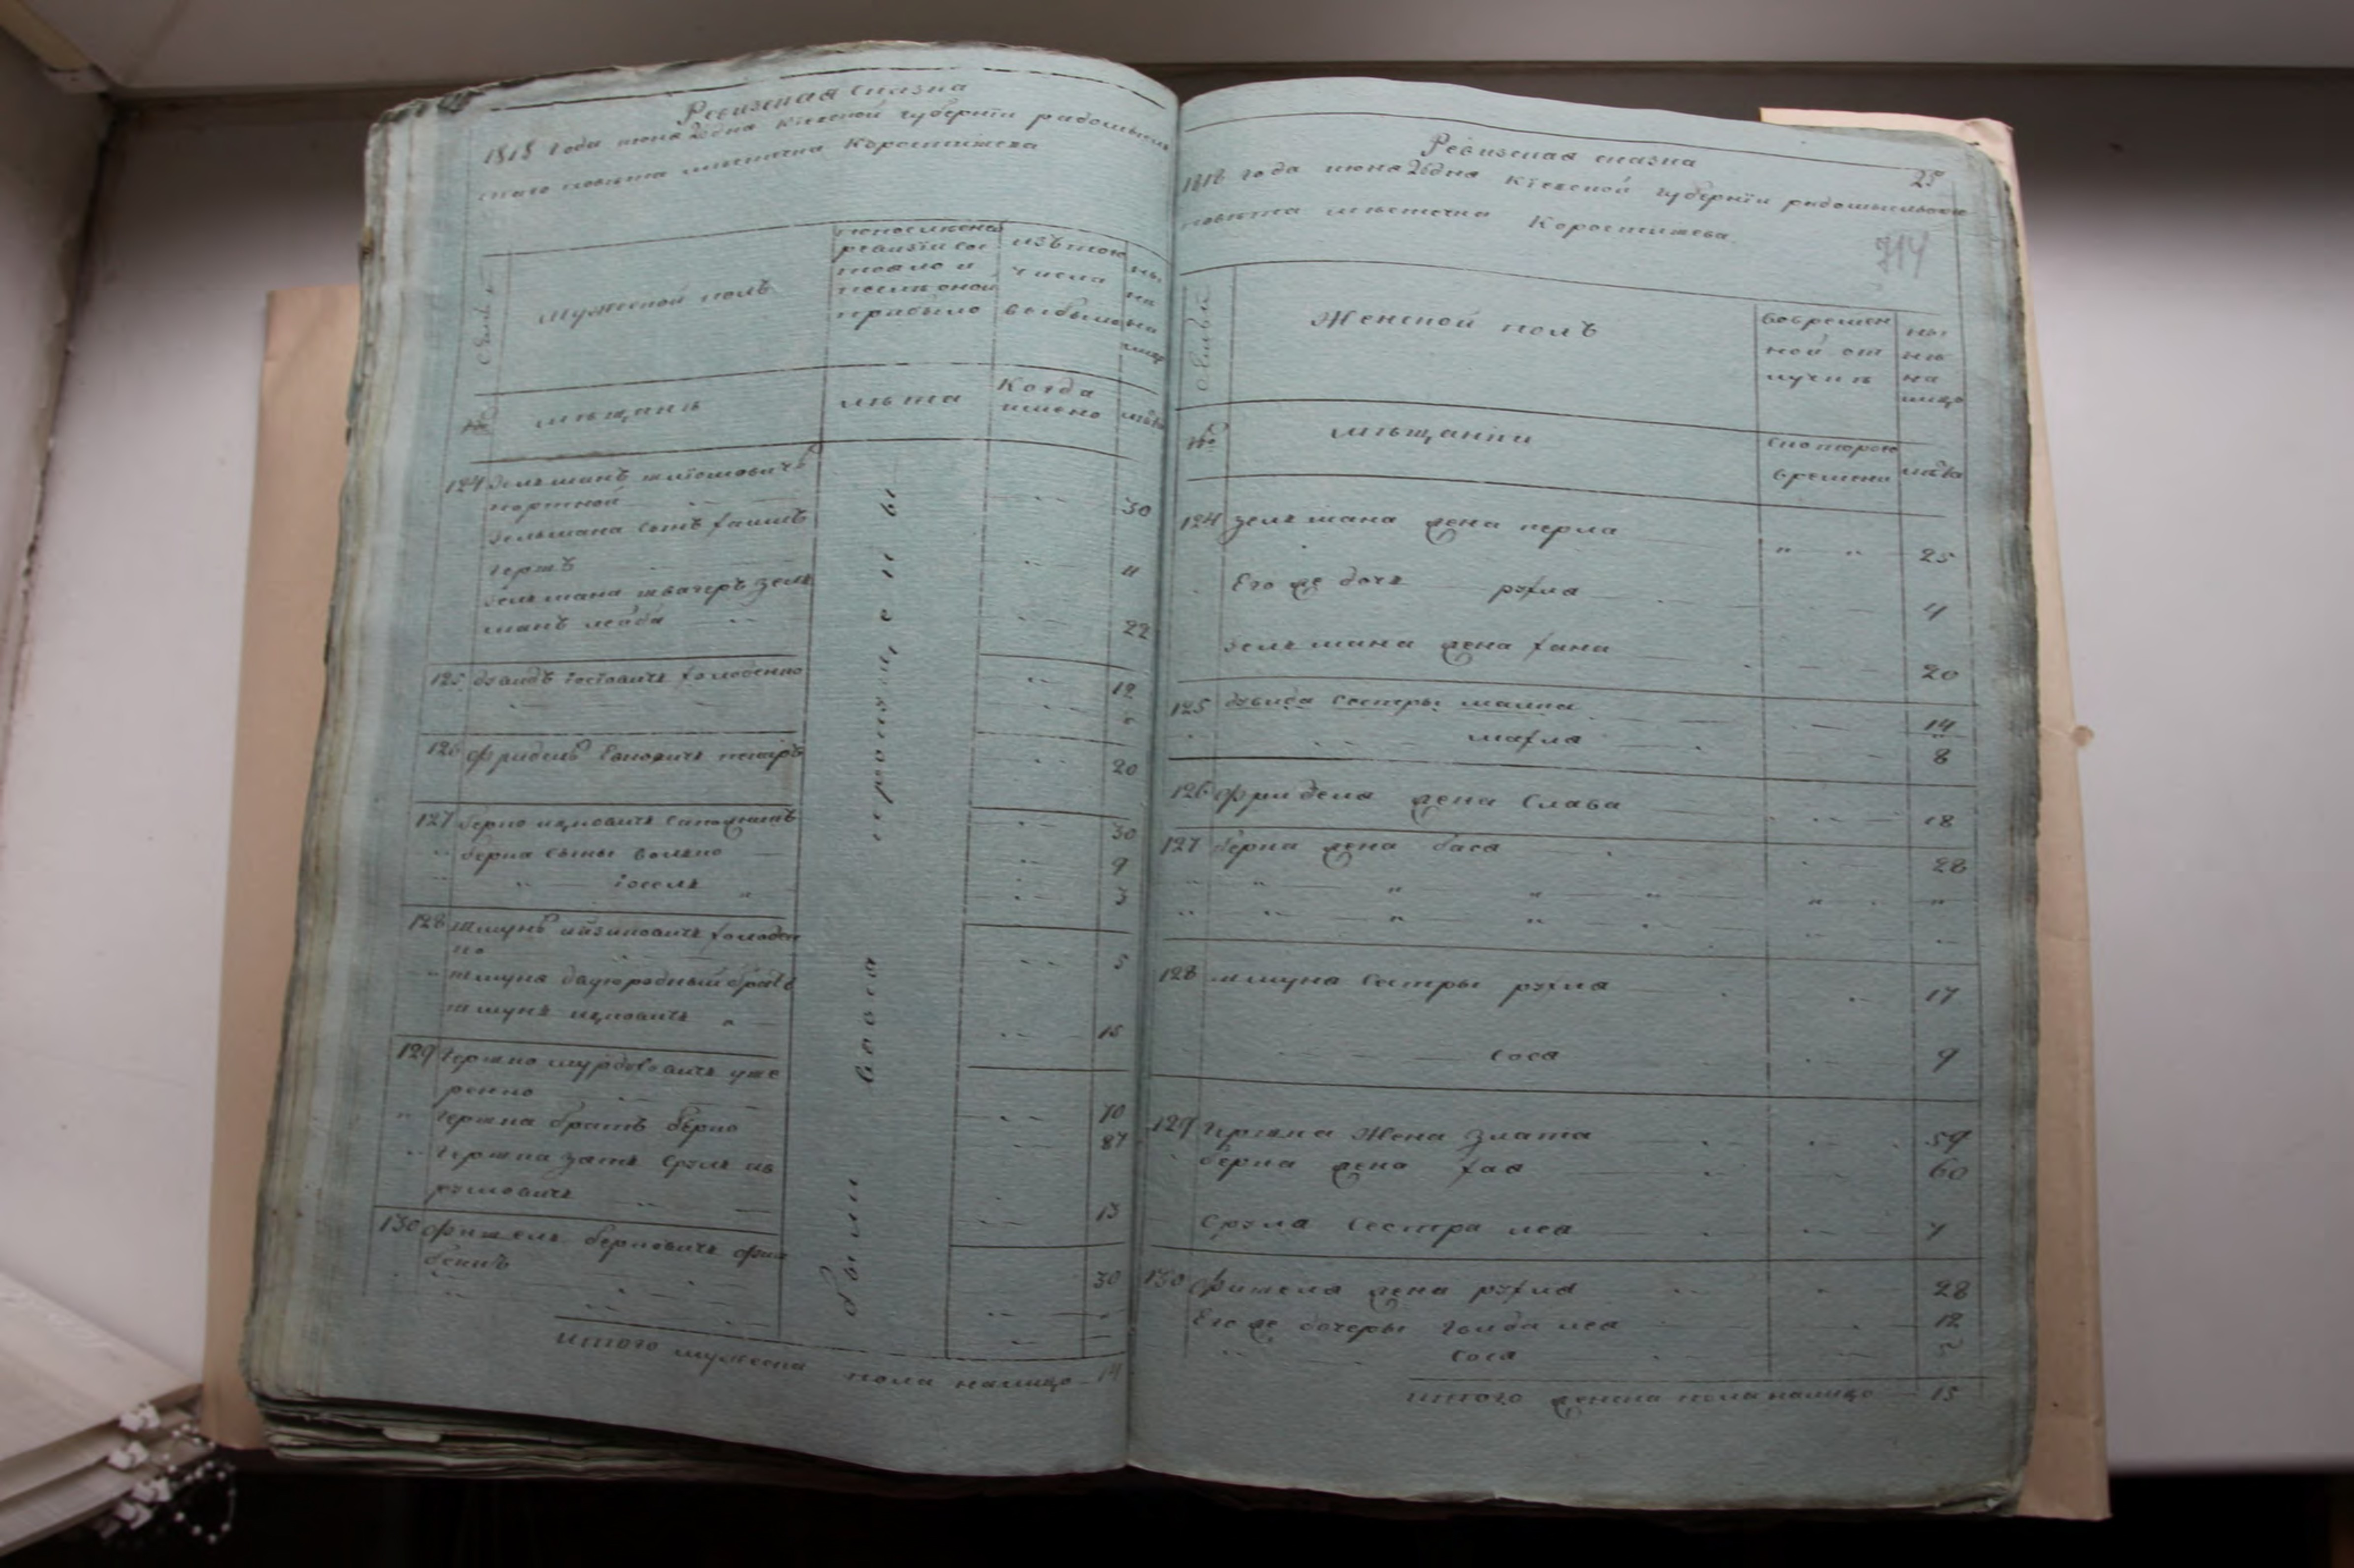 Ревизская сказка
1818 года июня 26 дня Кіевской губерніи радомысль
скаго повѣта мѣстечка Коростишева
Семьи
Мужеской полъ
по последней
ревизіи сос
тояло и
послѣ оной
прибыло
изътого
числа
выбыло
ны
нѣ
на
лицо
№
мѣщанѣ
лѣта
Когда
имено
лѣта
124 Зельманъ шліомовичъ
портной 30
Зельмана сынъ
гершъ 4
Зельмана швагеръ Зель
манъ лейба 22
125 Дувидъ іосіовичь холоденко 12
126 Фридель 20
127 Берко ицковичь 30
Берка сыны волько 9
іосель 3
128 Шмунь айзиковичь холоден
ко 5
шмуна двуюродный братъ
шмунь ицковичь 15
129 Гершко
70
Гершка братъ Берко 87
Гершка зять Сруль
13
130 Фишель берковичь
30
пропущены
вовсѣ
были
итого мужеска пола налицо 14
Ревизская сказка
25
1818 года июня 26 дня Кіевской губерніи радомысльского
повѣта мѣстечка Коростишева
714
Семьи
Женской полъ
вовремен
ной от
лучкѣ
ны
нѣ
на
лицо
№
мѣщанки
Скоторого
времени
лѣта
124 Зельмана жена перла 25
Его же дочь рухля 4
Зельмана жена хана 20
125 Дувида сестры малка 14
махля 8
126 Фриделя жена Слава 18
127 Берка жена бася 28
128 шмуна Сестры рухля 17
сося 9
129 Гершка Жена Злата 59
Берка жена хая 60
Сруля сестра лея 7
130 Фишеля жена рухля 28
Его же дочеры голда лея 12
сося
итого женска пола налицо 15